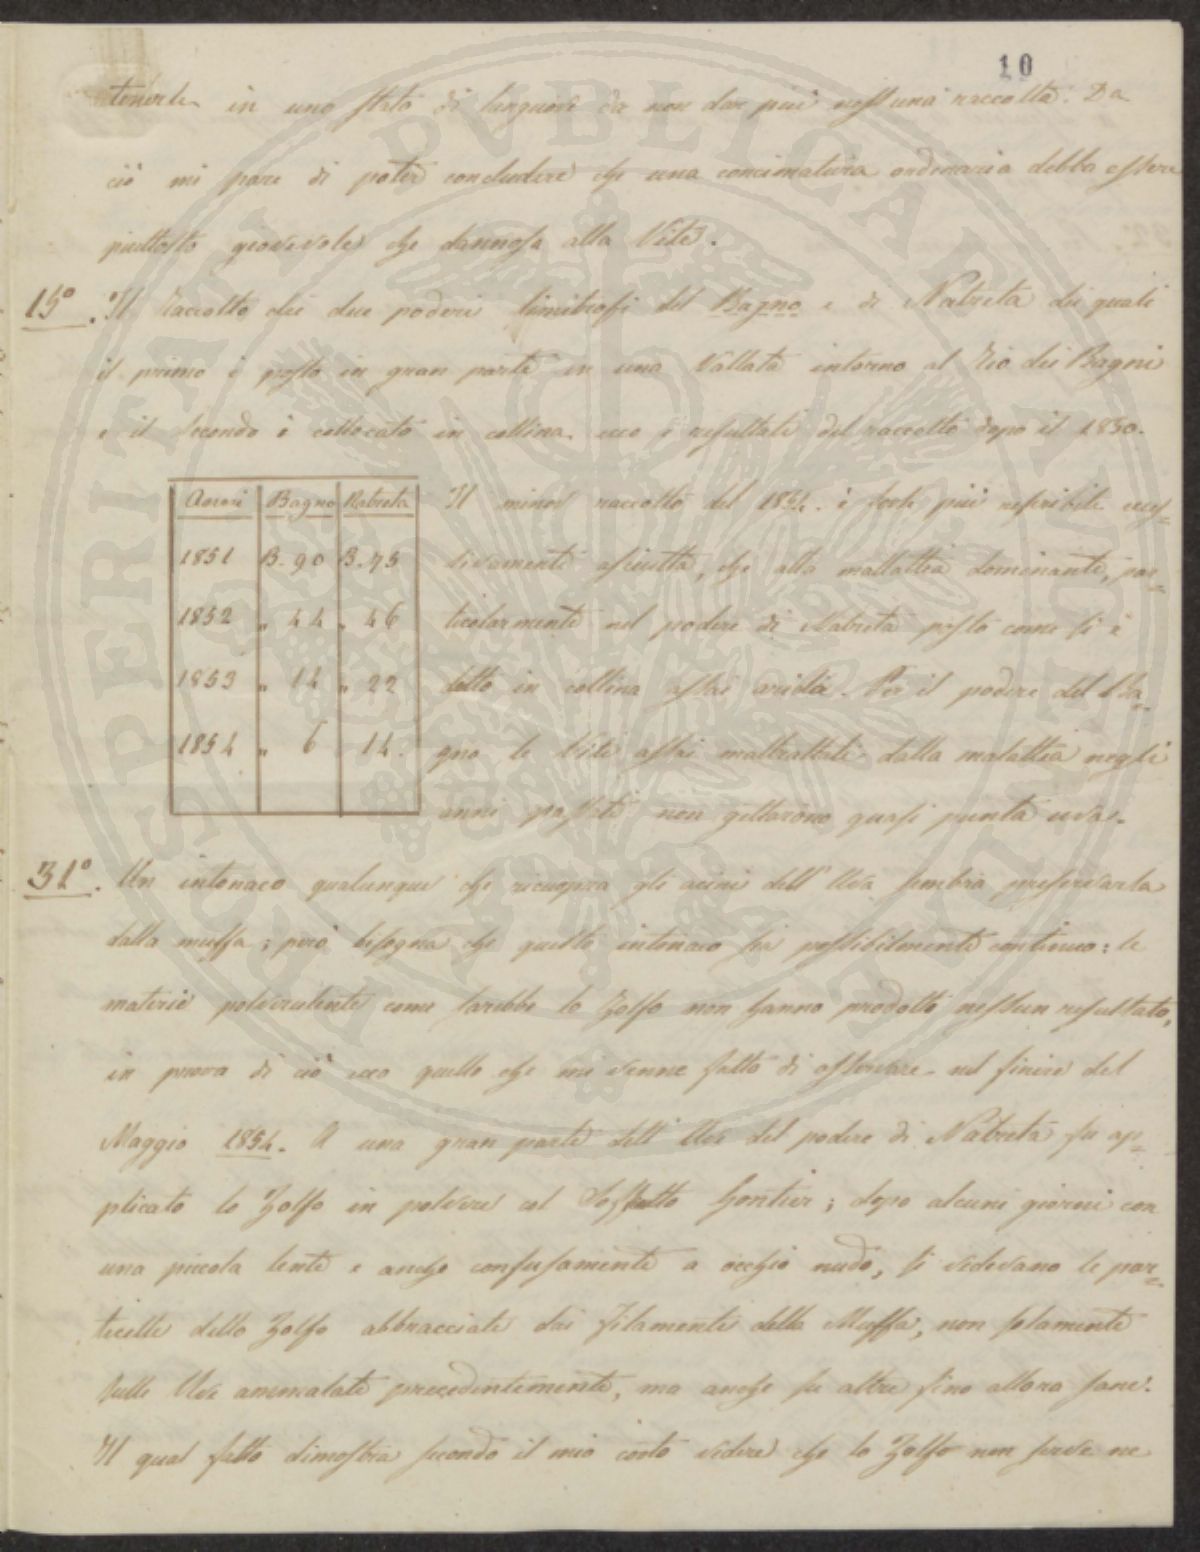 10
tenerle in uno stato di languore da non dar più nessuna raccolta. Da
ciò mi pare di poter concludere che una concimatura ordinaria debba essere
piuttosto giovevole che dannosa alla Vite.
15°. Il Raccolto dei due poderi limitrofi del Bagno e di Nabreta dei quali
il primo è posto in gran parte in una Vallata intorno al Rio dei Bagni
e il secondo è collocato in collina ecco i resultati del raccolto dopo il 1850.
Anni Bagno Nabreta
1851 B. 90 B. 75
1852 „ 44 „ 46
1853 „ 14 „ 22
1854 „ 6 14.
Il minor raccolto del 1854. è forse più referibile
asciutta, che alla mallattia dominante, par=
ticolarmente nel podere di Nabreta posto come si è
detto in collina assai arida. Per il podere del Ba=
gno le Viti assai maltrattate dalla malattia negli
anni passati non gettarono quasi punta uva.
31°. Un intonaco qualunque che ricuopra gli acini dell' Uva sembra preservarla
dalla muffa; però bisogna che questo intonaco sia possibilmente continuo: le
materie polverulente come sarebbe lo Zolfo non hanno prodotto nessun resultato,
in prova di ciò ecco quello che mi venne fatto di osservare nel finire del
Maggio 1854. A una gran parte dell' Uva del podere di Nabreta fu ap=
plicato lo Zolfo in polvere col Soffietto Gontier; dopo alcuni giorni con
una piccola lente e anche confusamente a occhio nudo, si vedevano le par=
ticelle dello Zolfo abbracciate dai filamenti della Muffa, non solamente
sulle Uve ammalate precedentemente, ma anche su altre fino allora sane.
Il qual fatto dimostra secondo il mio corto vedere che lo Zolfo non serve ne